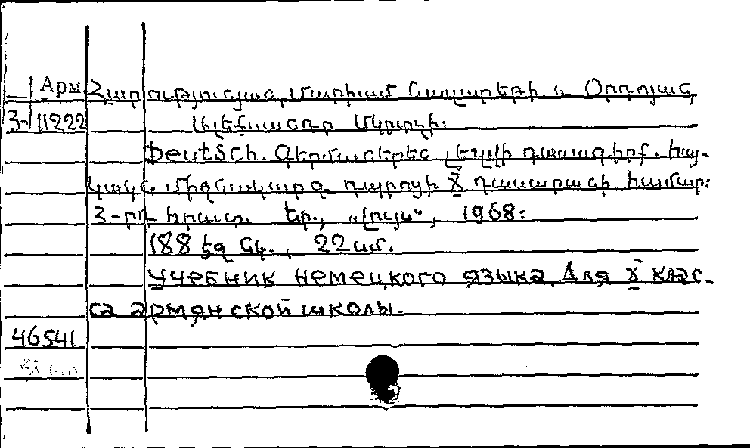 Арм Հարությունյան, Մարիամ Նազարեթի և Օրդոյան,
3-11222 Ալեքսանդր Մկրտչի:
Deutsch. Գերմաներեն լեզվի դասագիրք. հայ-
կակ. միջնակարգ դպրոցի X դասարանի համար:
3-րդ հրատ. Եր., «Լույս», 1968:
188 էջ նկ., 22 սմ.
Учебник немецкого языка. Для X клас-
са армянской школы.
46541